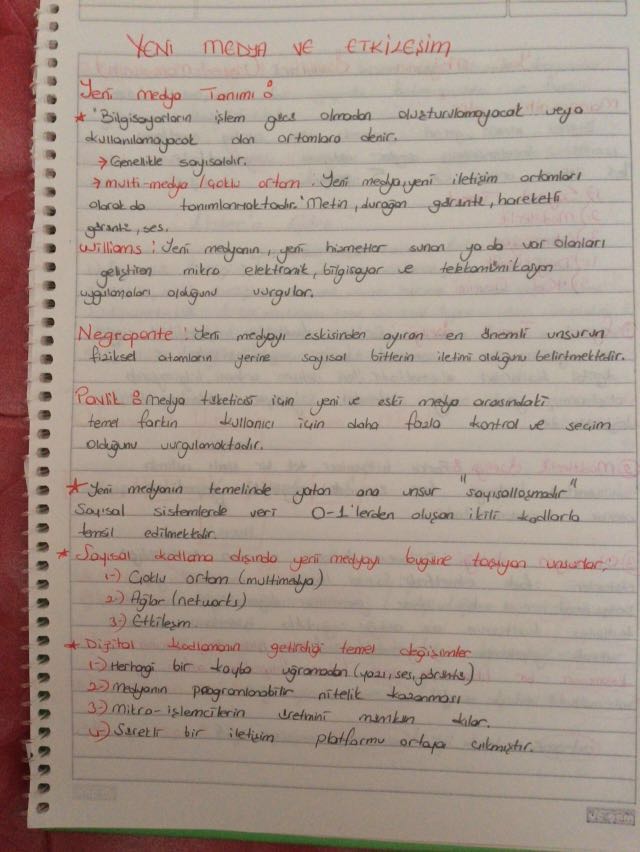 YENİ MEDYA VE ETKİLEŞİM
Yeni medya Tanımı :
* "Bilgisayarların işlem gücü olmadan oluşturulamayacak veya
kullanılamayacak olan ortamlara denir.
→ Genellikle sayısaldır.
→ multi-medya / Çoklu ortam. Yeni medya, yeni iletişim ortamları
olarak da tanımlanmaktadır. Metin, durağan görüntü, hareketli
görüntü, ses.
Williams : Yeni medyanın, yeni hizmetler sunan ya da var olanları
geliştiren mikro elektronik, bilgisayar ve telekomünikasyon
uygulamaları olduğunu vurgular.
Negroponte : Yeni medyayı eskisinden ayıran en önemli unsurun
fiziksel atomların yerine sayısal bitlerin iletimi olduğunu belirtmektedir.
Pavlik : medya tüketicisi için yeni ve eski medya arasındaki
temel farkın kullanıcı için daha fazla kontrol ve seçim
olduğunu vurgulamaktadır.
* Yeni medyanın temelinde yatan ana unsur "sayısallaşmadır"
Sayısal sistemlerde veri 0-1'lerden oluşan ikili kodlarla
temsil edilmektedir.
* Sayısal kodlama dışında yeni medyayı bugüne taşıyan unsurlar;
1-) Çoklu ortam (multimedya)
2-) Ağlar (networks)
3-) Etkileşim
* Dijital kodlamanın getirdiği temel değişimler
1-) Herhagi bir kayba uğramadan (yazı, ses, görüntü)
2-) Medyanın programlanabilir nitelik kazanması
3-) Mikro-işlemcilerin üretmini mümkün kılar.
4-) Sürekli bir iletişim platformu ortaya çıkmıştır.